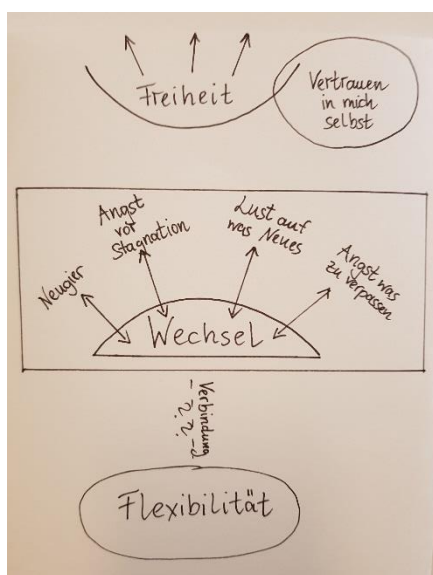 Freiheit
Vertrauen
in mich
selbst
Neugier
Angst
vor
Stagnation
Lust auf
was Neues
Angst was
zu verpassen
Wechsel
Verbindung
- ?? -
Flexibilität